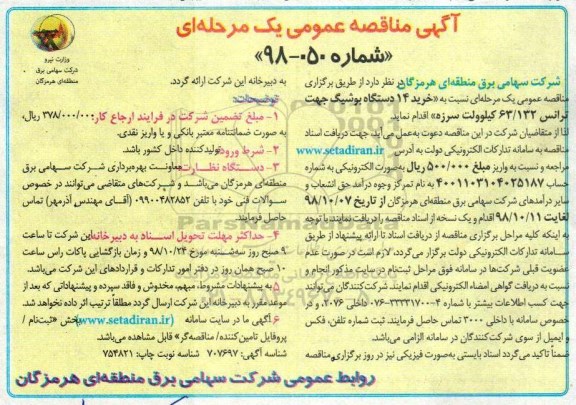 آگهی مناقصه عمومی یک مرحله‌ای
«شماره ۰۵۰-۹۸»
وزارت نیرو
شرکت سهامی برق
منطقه‌ای هرمزگان
شرکت سهامی برق منطقه‌ای هرمزگان در نظر دارد از طریق برگزاری
مناقصه عمومی یک مرحله‌ای نسبت به «خرید ۱۴ دستگاه بوشینگ جهت
ترانس ۶۳/۱۳۲ کیلوولت سرزه» اقدام نماید.
لذا از متقاضیان شرکت در این مناقصه دعوت به‌عمل می‌آید جهت دریافت اسناد
مناقصه به سامانه تدارکات الکترونیکی دولت به آدرس (www.setadiran.ir)
مراجعه و نسبت به واریز مبلغ ۵۰۰/۰۰۰ ریال به‌صورت الکترونیکی به شماره
حساب ۴۰۰۱۱۰۳۱۰۴۰۲۵۱۸۷ به نام تمرکز وجوه درآمد حق انشعاب و
سایر درآمدهای شرکت برق منطقه‌ای هرمزگان از تاریخ ۹۸/۱۰/۰۷
لغایت ۹۸/۱۰/۱۱ اقدام و یک نسخه از اسناد مناقصه را دریافت نمایند. با توجه
به اینکه کلیه مراحل برگزاری مناقصه از دریافت اسناد تا ارائه پیشنهاد از طریق
سامانه تدارکات الکترونیکی دولت برگزار می‌گردد، لازم است در صورت عدم
عضویت قبلی شرکت‌ها در سامانه فوق مراحل ثبت‌نام در سایت مذکور انجام و
نسبت به دریافت گواهی امضاء الکترونیکی اقدام نمایند. شرکت‌کنندگان می‌توانند
جهت کسب اطلاعات بیشتر با شماره ۴-۳۳۳۳۱۷۰۰-۰۷۶ داخلی ۲۰۷۶، و در
خصوص سامانه با داخلی ۳۰۰۰ تماس حاصل فرمایند. ثبت شماره تلفن، فکس
و ایمیل از سوی شرکت‌کنندگان در سامانه الزامی می‌باشد.
ضمناً تاکید می‌گردد اسناد بایستی به‌صورت فیزیکی نیز در روز برگزاری مناقصه
به دبیرخانه این شرکت ارائه گردد.
توضیحات:
۱- مبلغ تضمین شرکت در فرایند ارجاع کار ۳۷۸/۰۰۰/۰۰۰ ریال،
به صورت ضمانتنامه معتبر بانکی و یا واریز نقدی.
۲- شرط ورود: تولیدکننده داخل کشور باشد.
۳- دستگاه نظارت: معاونت بهره‌برداری شرکت سهامی برق
منطقه‌ای هرمزگان می‌باشد و شرکت‌های متقاضی می‌توانند در خصوص
سوالات فنی خود با تلفن ۰۹۹۰۰۴۸۲۸۵۲ (آقای مهندس آذرمهر) تماس
حاصل فرمایند.
۴- حداکثر مهلت تحویل اسناد به دبیرخانه این شرکت تا ساعت
۹ صبح روز سه‌شنبه مورخ ۹۸/۱۰/۲۴ و زمان بازگشایی پاکات راس ساعت
۱۰ صبح همان روز در دفتر امور تدارکات و قراردادهای این شرکت می‌باشد.
۵- به پیشنهادات مشروط، مبهم، مخدوش و فاقد سپرده و پیشنهاداتی که بعد از
موعد مقرر به دبیرخانه این شرکت ارسال گردد مطلقاً ترتیب اثر داده نخواهد شد.
۶- آگهی ما در سایت سامانه (www.setadiran.ir) بخش «ثبت‌نام /
پروفایل تامین‌کننده / مناقصه‌گر» قابل مشاهده می‌باشد.
شناسه آگهی: ۷۰۷۶۹۷ شناسه نوبت چاپ: ۷۵۴۸۲۱
روابط عمومی شرکت سهامی برق منطقه‌ای هرمزگان